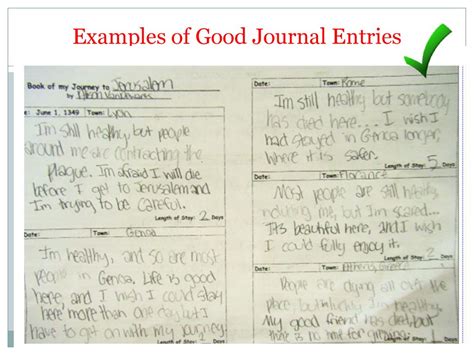 Examples of Good Journal Entries
Book of my Journey to Jerusalem
by
Date: June 1, 1349 Town: Lyon
I'm still healthy, but people
around me are contracting the
plague. I'm afraid I will die
before I get to Jerusalem and
I'm trying to be careful.
Length of Stay: 2 Days
Date: Town: Genoa
I'm healthy, and so are most
people in Genoa. Life is good
here, and I wish I could stay
here more than one day but I
have to get on with my journey.
Date: Town: Rome
I'm still healthy but somebody
has died here... I wish I
had stayed in Genoa longer,
where it is safer.
Length of Stay: 5 Days
Date: Town: Florance
Most people are still healthy
including me, but I'm scared...
It's beautiful here, and I wish
I could fully enjoy it.
Length of Stay: Days
Date: Town: Athens,
People are dying all over the
place, but luckily I'm healthy.
My good friend has died, but
there is no time for